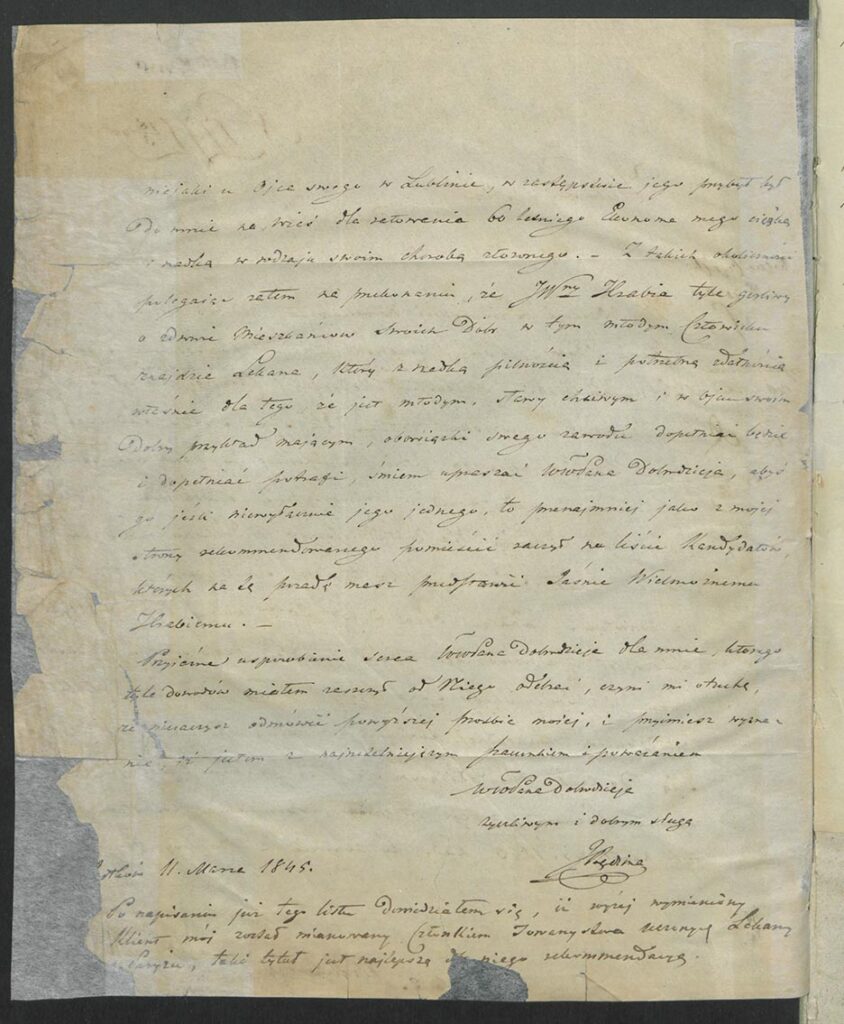 u Ojca swego w Lublinie, w zastępstwie jego przybył był
Do mnie na wieś dla ratowania boleśnego Ekonoma mego ciężką
i rzadką w rodzaju swoim chorobą złożonego. – Z takich okoliczności
polegając zatem na przekonaniu, że JWny Hrabia tyle gorliwy
o zdrowie Mieszkańców Swoich Dóbr w tym młodym Człowieku
znajdzie Lekarza, który z rzadką pilnością i potrzebną zdatnością
właśnie dla tego, że jest młodym, sławy chciwym i w ojcu swoim
Dobry przykład mającym, obowiązki swego zawodu dopełniać będzie
i dopełniać potrafi, śmiem upraszać WWPana Dobrodzieja, abyś
go jeśli niewyłącznie jego jednego, to przenajmniej jako z mojej
strony rekommendowanego pomieścić raczył na liście Kandydatów,
których na tę posadę masz przedstawić Jaśnie Wielmożnemu
Hrabiemu. –
Przyjazne usposobienie serca WWPana Dobrodzieja dla mnie, którego
tyle dowodów miałem zaszczyt od Niego odebrać, czyni mi otuchę,
że nieraczysz odmówić powyższej prozbie mojej, i przyjmiesz wyzna-
nie, iż jestem z najrzetelniejszym szacunkiem i poważaniem
WWPana Dobrodzieja
życzliwym i dobrym sługą
11. Marca 1845.
Po napisaniu już tego listu dowiedziałem się, iż wyżej wymieniony
Klient mój został mianowany Członkiem Towarzystwa uczonych Lekarzy
Paryżu, taki tytuł jest najlepszą dla niego rekommendacyą.